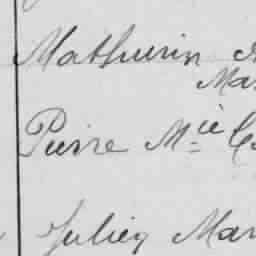 Mathurin
Mar
Pierre Mie
Julien Mar